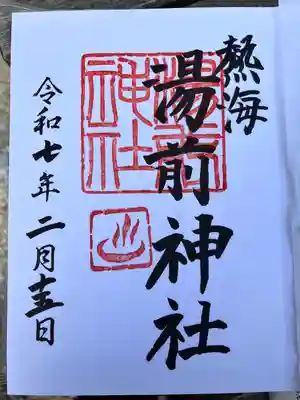 熱海
湯前神社
湯前神社
令和七年二月十五日